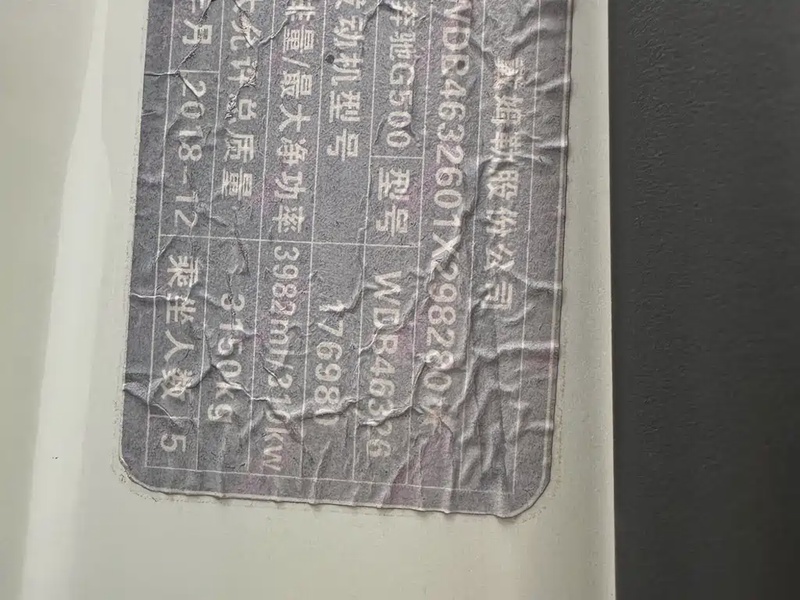 姆勒股份公司
WDB4632601X298280
奔驰G500 型号 WDB463
动机型号 17698
排量/最大净功率 3982ml/21 kw
允许总质量 3150kg
年月 2018-12 乘坐人数 5